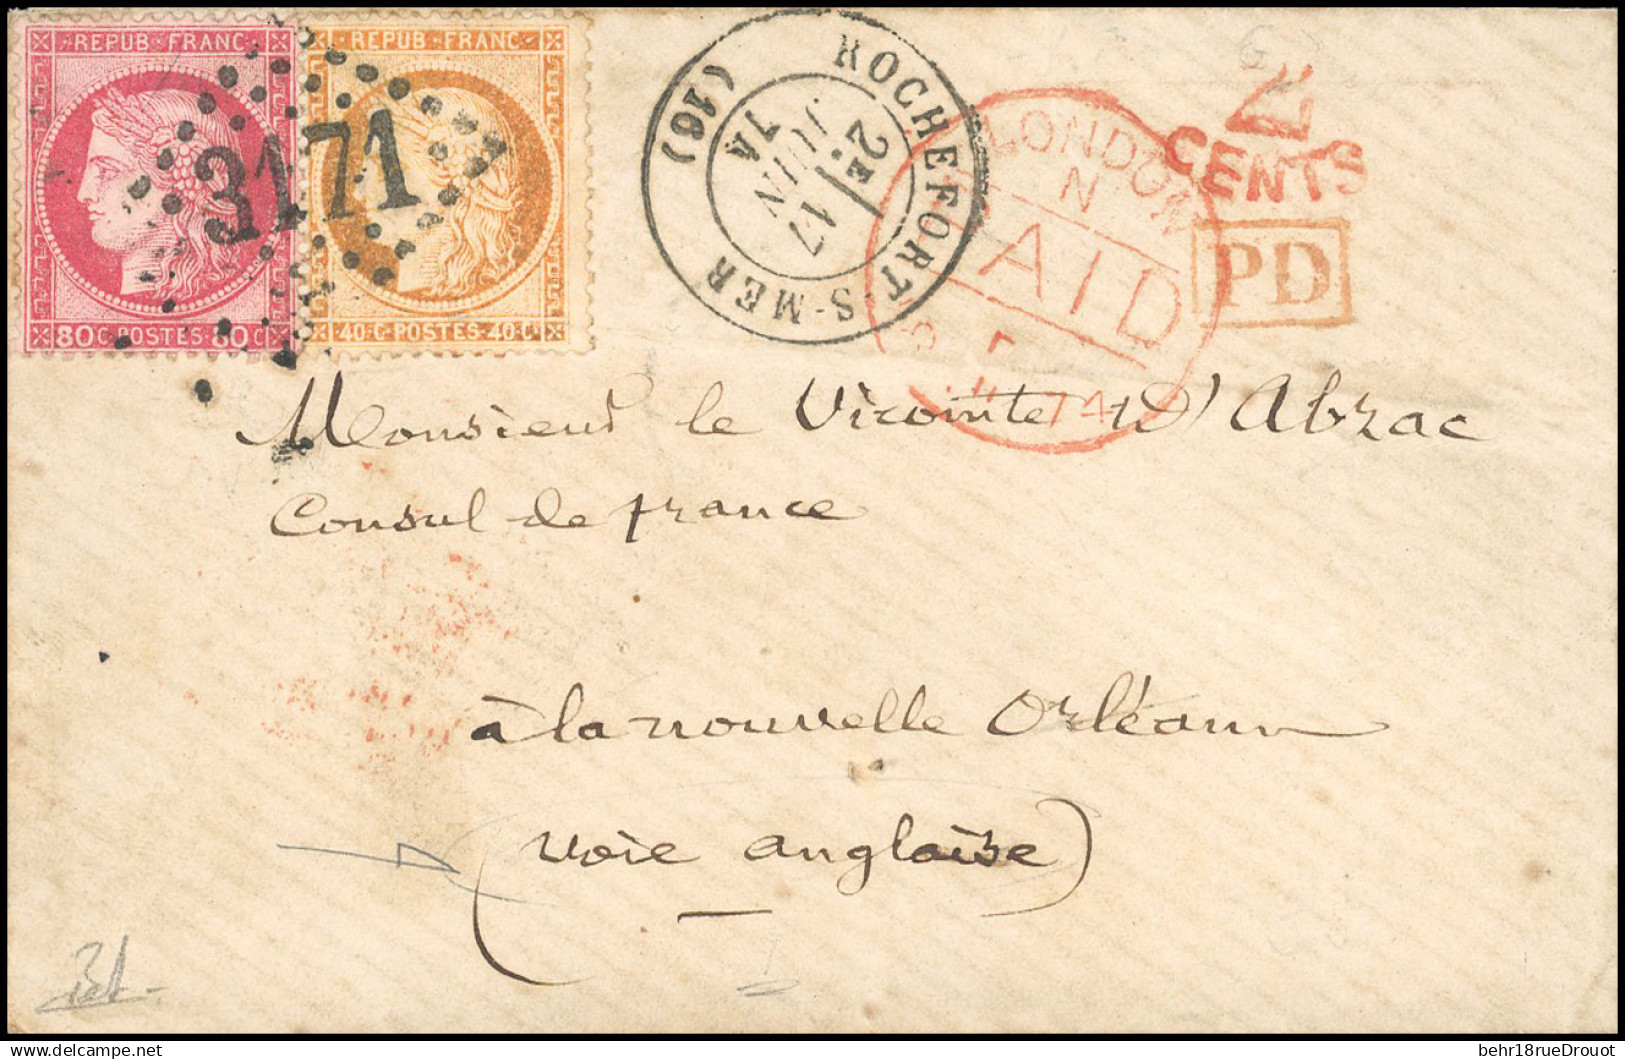 REPUB FRANC
80 C·POSTES·80 C
REPUB·FRANC
40·C·POSTES·40·C
3171
ROCHEFORT-S-MER
(16)
2E
17
JUIN
74
LONDON
N
PAID
74
2
CENTS
PD
Monsieur le Vicomte D'Abzac
Consul de france
à la nouvelle Orléans
(voie anglaise)
behr18rueDrouot